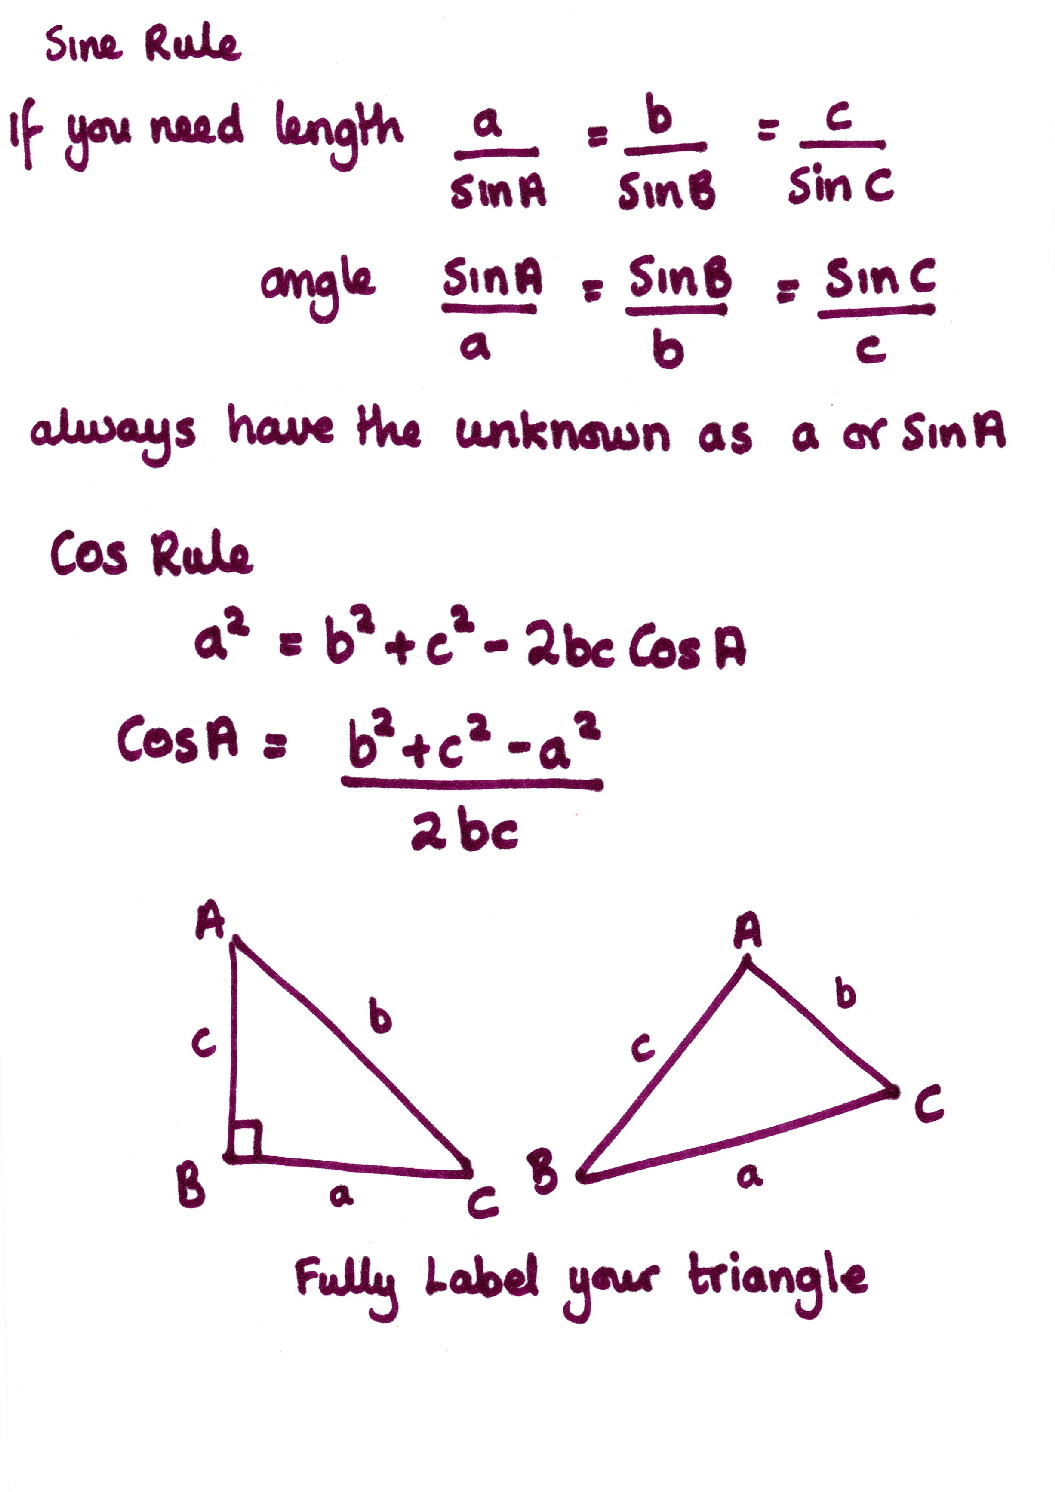 Sine Rule
If you need length a/SinA = b/SinB = c/Sin C
angle SinA/a = SinB/b = Sin C/c
always have the unknown as a or SinA
Cos Rule
a² = b² + c² - 2bc Cos A
CosA = b² + c² - a² / 2bc
A
A
b
b
c
c
C
B
B
a
a
C
Fully Label your triangle